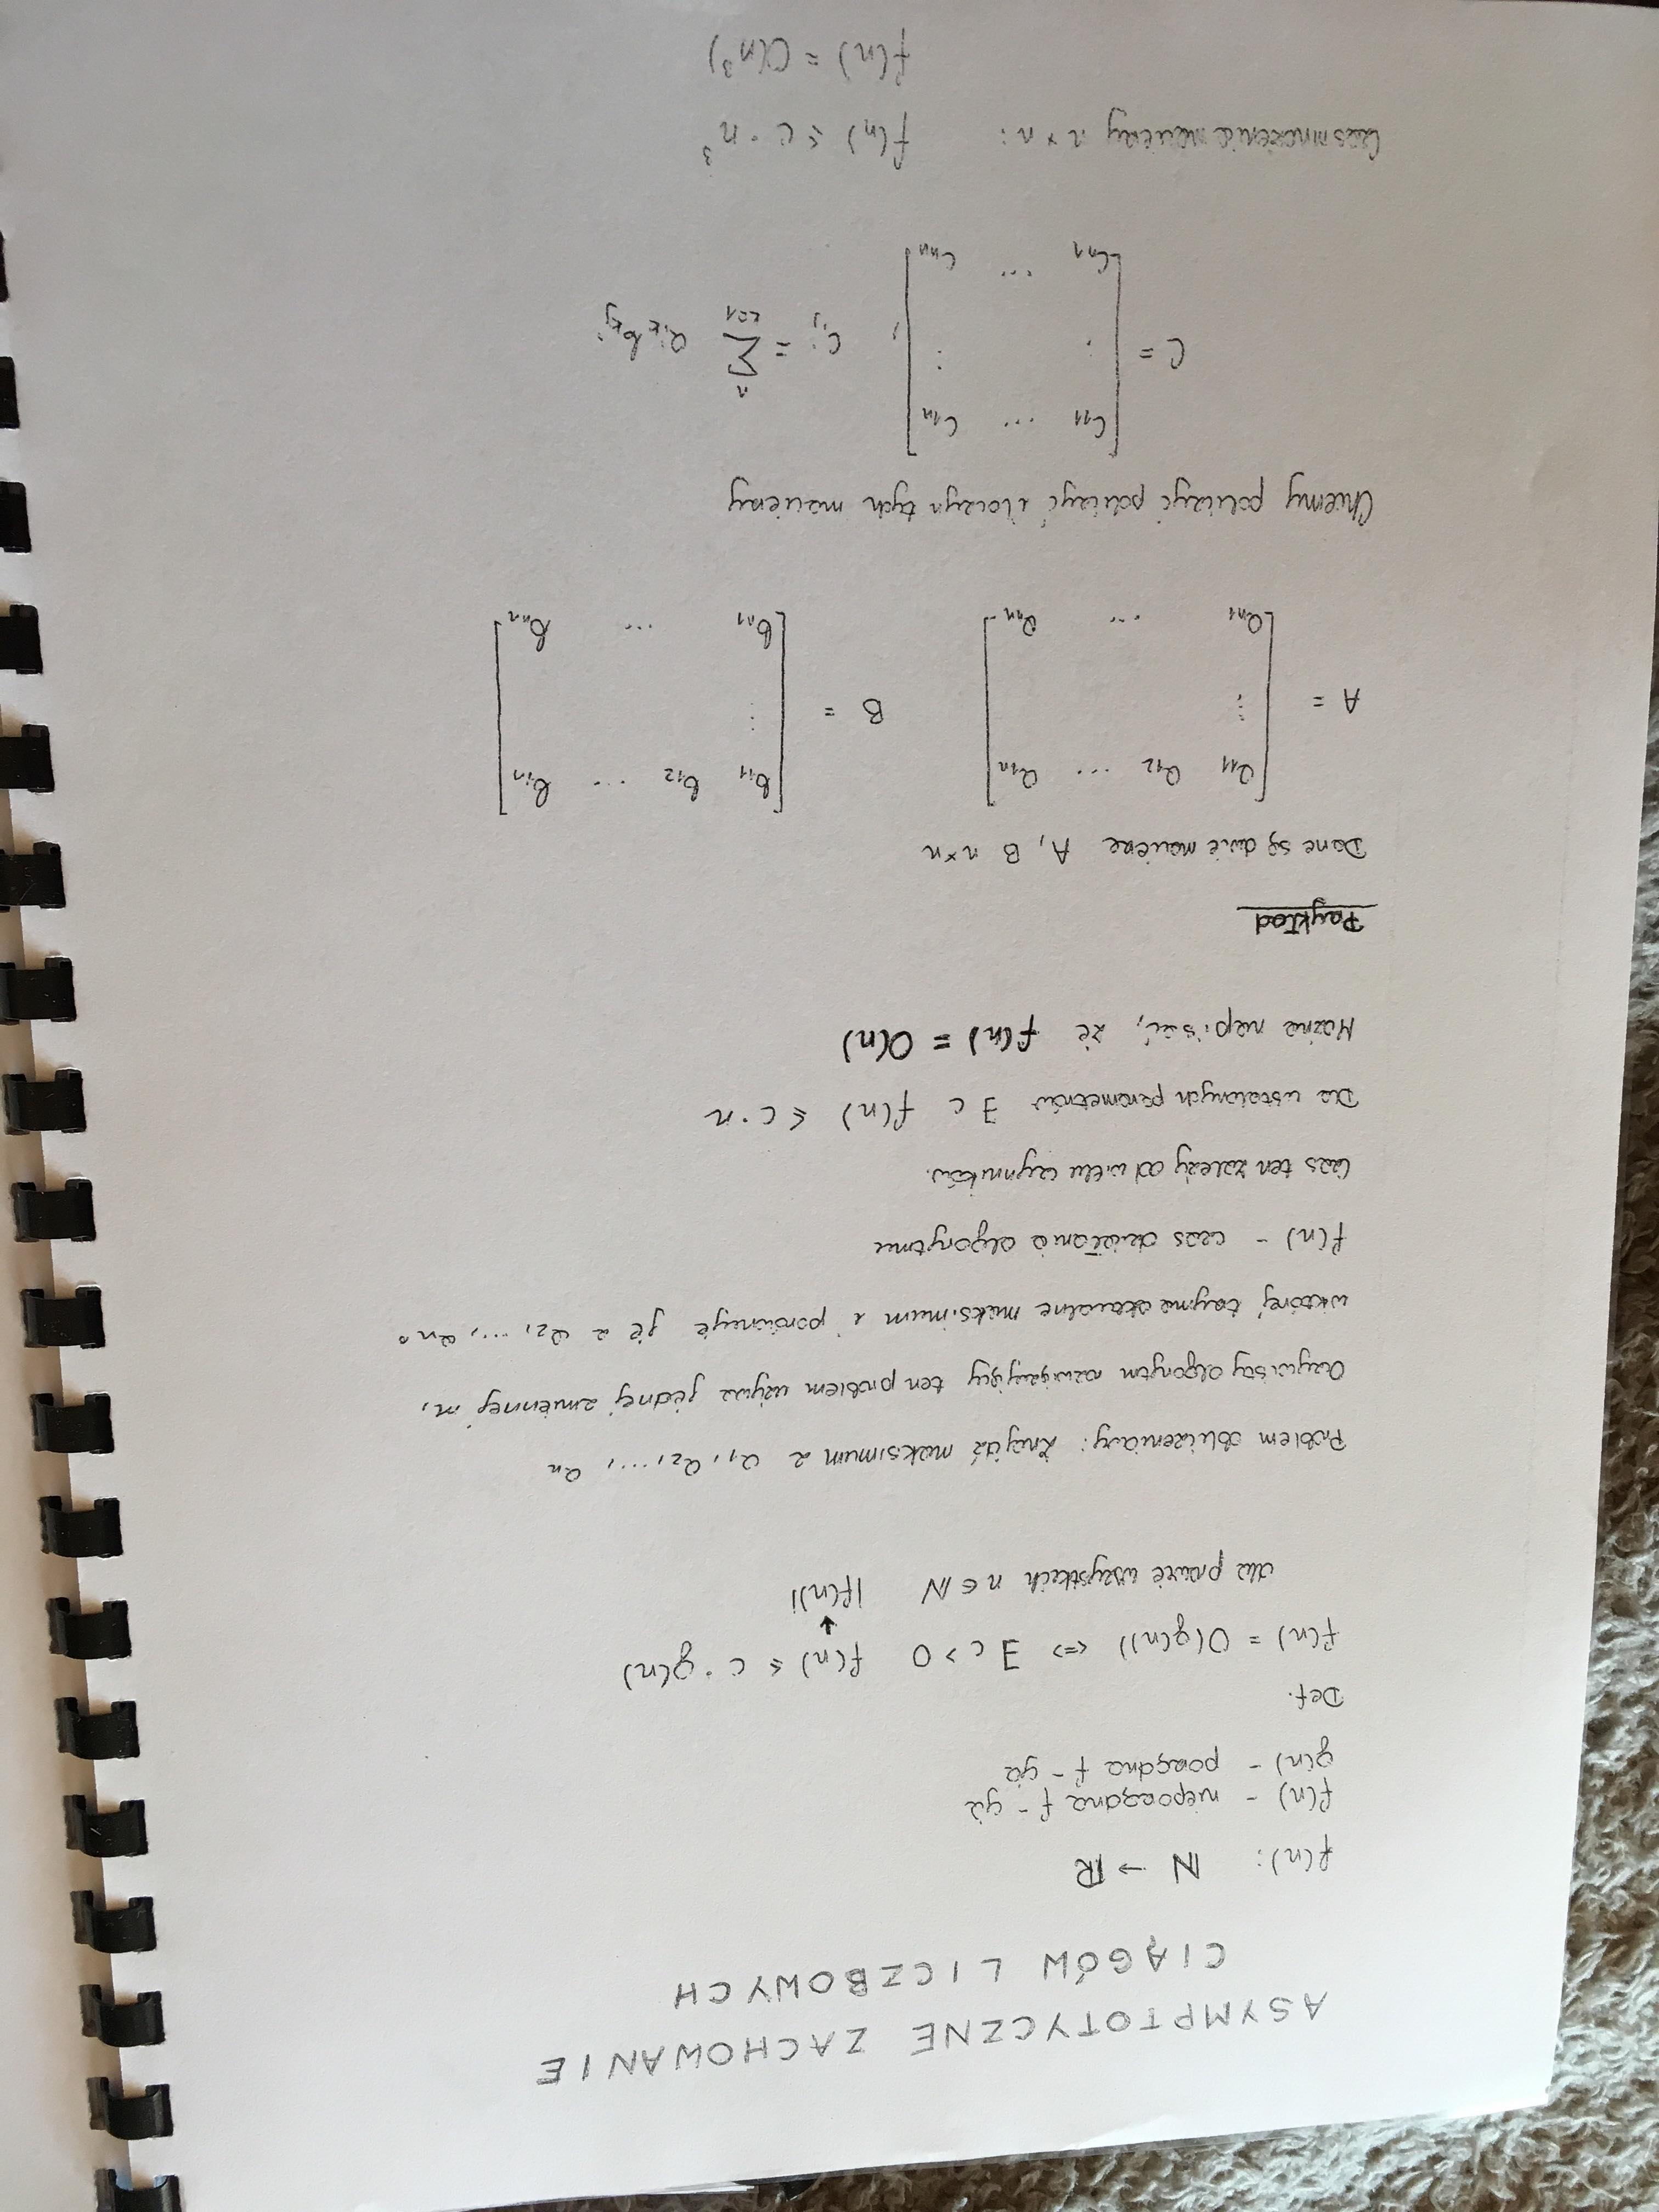 ASYMPTOTYCZNE ZACHOWANIE
CIĄGÓW LICZBOWYCH
f(n): ℕ → ℝ
f(n) - nieporządna f-cja
g(n) - porządna f-cja
Def.
f(n) = O(g(n)) <=> ∃ c > 0 f(n) ≤ c · g(n)
↓
dla prawie wszystkich n ∈ ℕ |f(n)|
Problem obliczeniowy: Znajdź maksimum z a₁, a₂, ..., aₙ
Oczywisty algorytm rozwiązujący ten problem używa jednej zmiennej m,
w której trzyma aktualne maksimum i porównuje je z a₂, ..., aₙ.
f(n) - czas działania algorytmu
Czas ten zależy od wielu czynników.
Dla ustalonych parametrów ∃ c f(n) ≤ c · n
Można napisać, że f(n) = O(n)
Przykład
Dane są dwie macierze A, B n×n
a₁₁ a₁₂ ... a₁ₙ b₁₁ b₁₂ ... b₁ₙ
A = ⋮ B = ⋮
aₙ₁ ... aₙₙ bₙ₁ ... bₙₙ
Chcemy policzyć policzyć iloczyn tych macierzy
c₁₁ ... c₁ₙ
C = ⋮ ⋮ , cᵢⱼ = ∑ₖ₌₁ⁿ aᵢₖ bₖⱼ
cₙ₁ ... cₙₙ
Czas mnożenia macierzy n × n: f(n) ≤ c · n³
f(n) = O(n³)